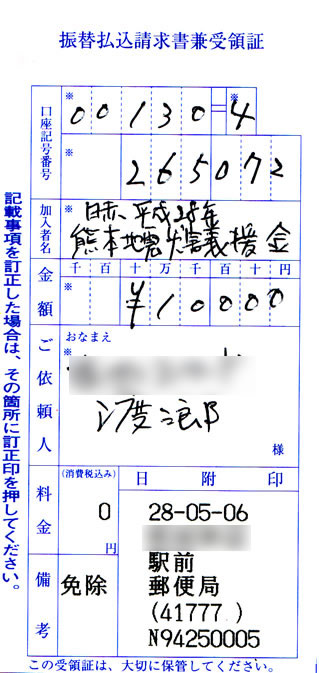 振替払込請求書兼受領証
口座記号番号
※
00130=4
※
265072
加入者名
※
日赤、平成28年
熊本地震災害義援金
金額
千百十万千百十円
※
¥10000
ご依頼人
おなまえ
※
様
料金
(消費税込み)
0
円
備考
免除
日附印
28-05-06
駅前
郵便局
(41777 )
N94250005
記載事項を訂正した場合は、その箇所に訂正印を押してください。
この受領証は、大切に保管してください。